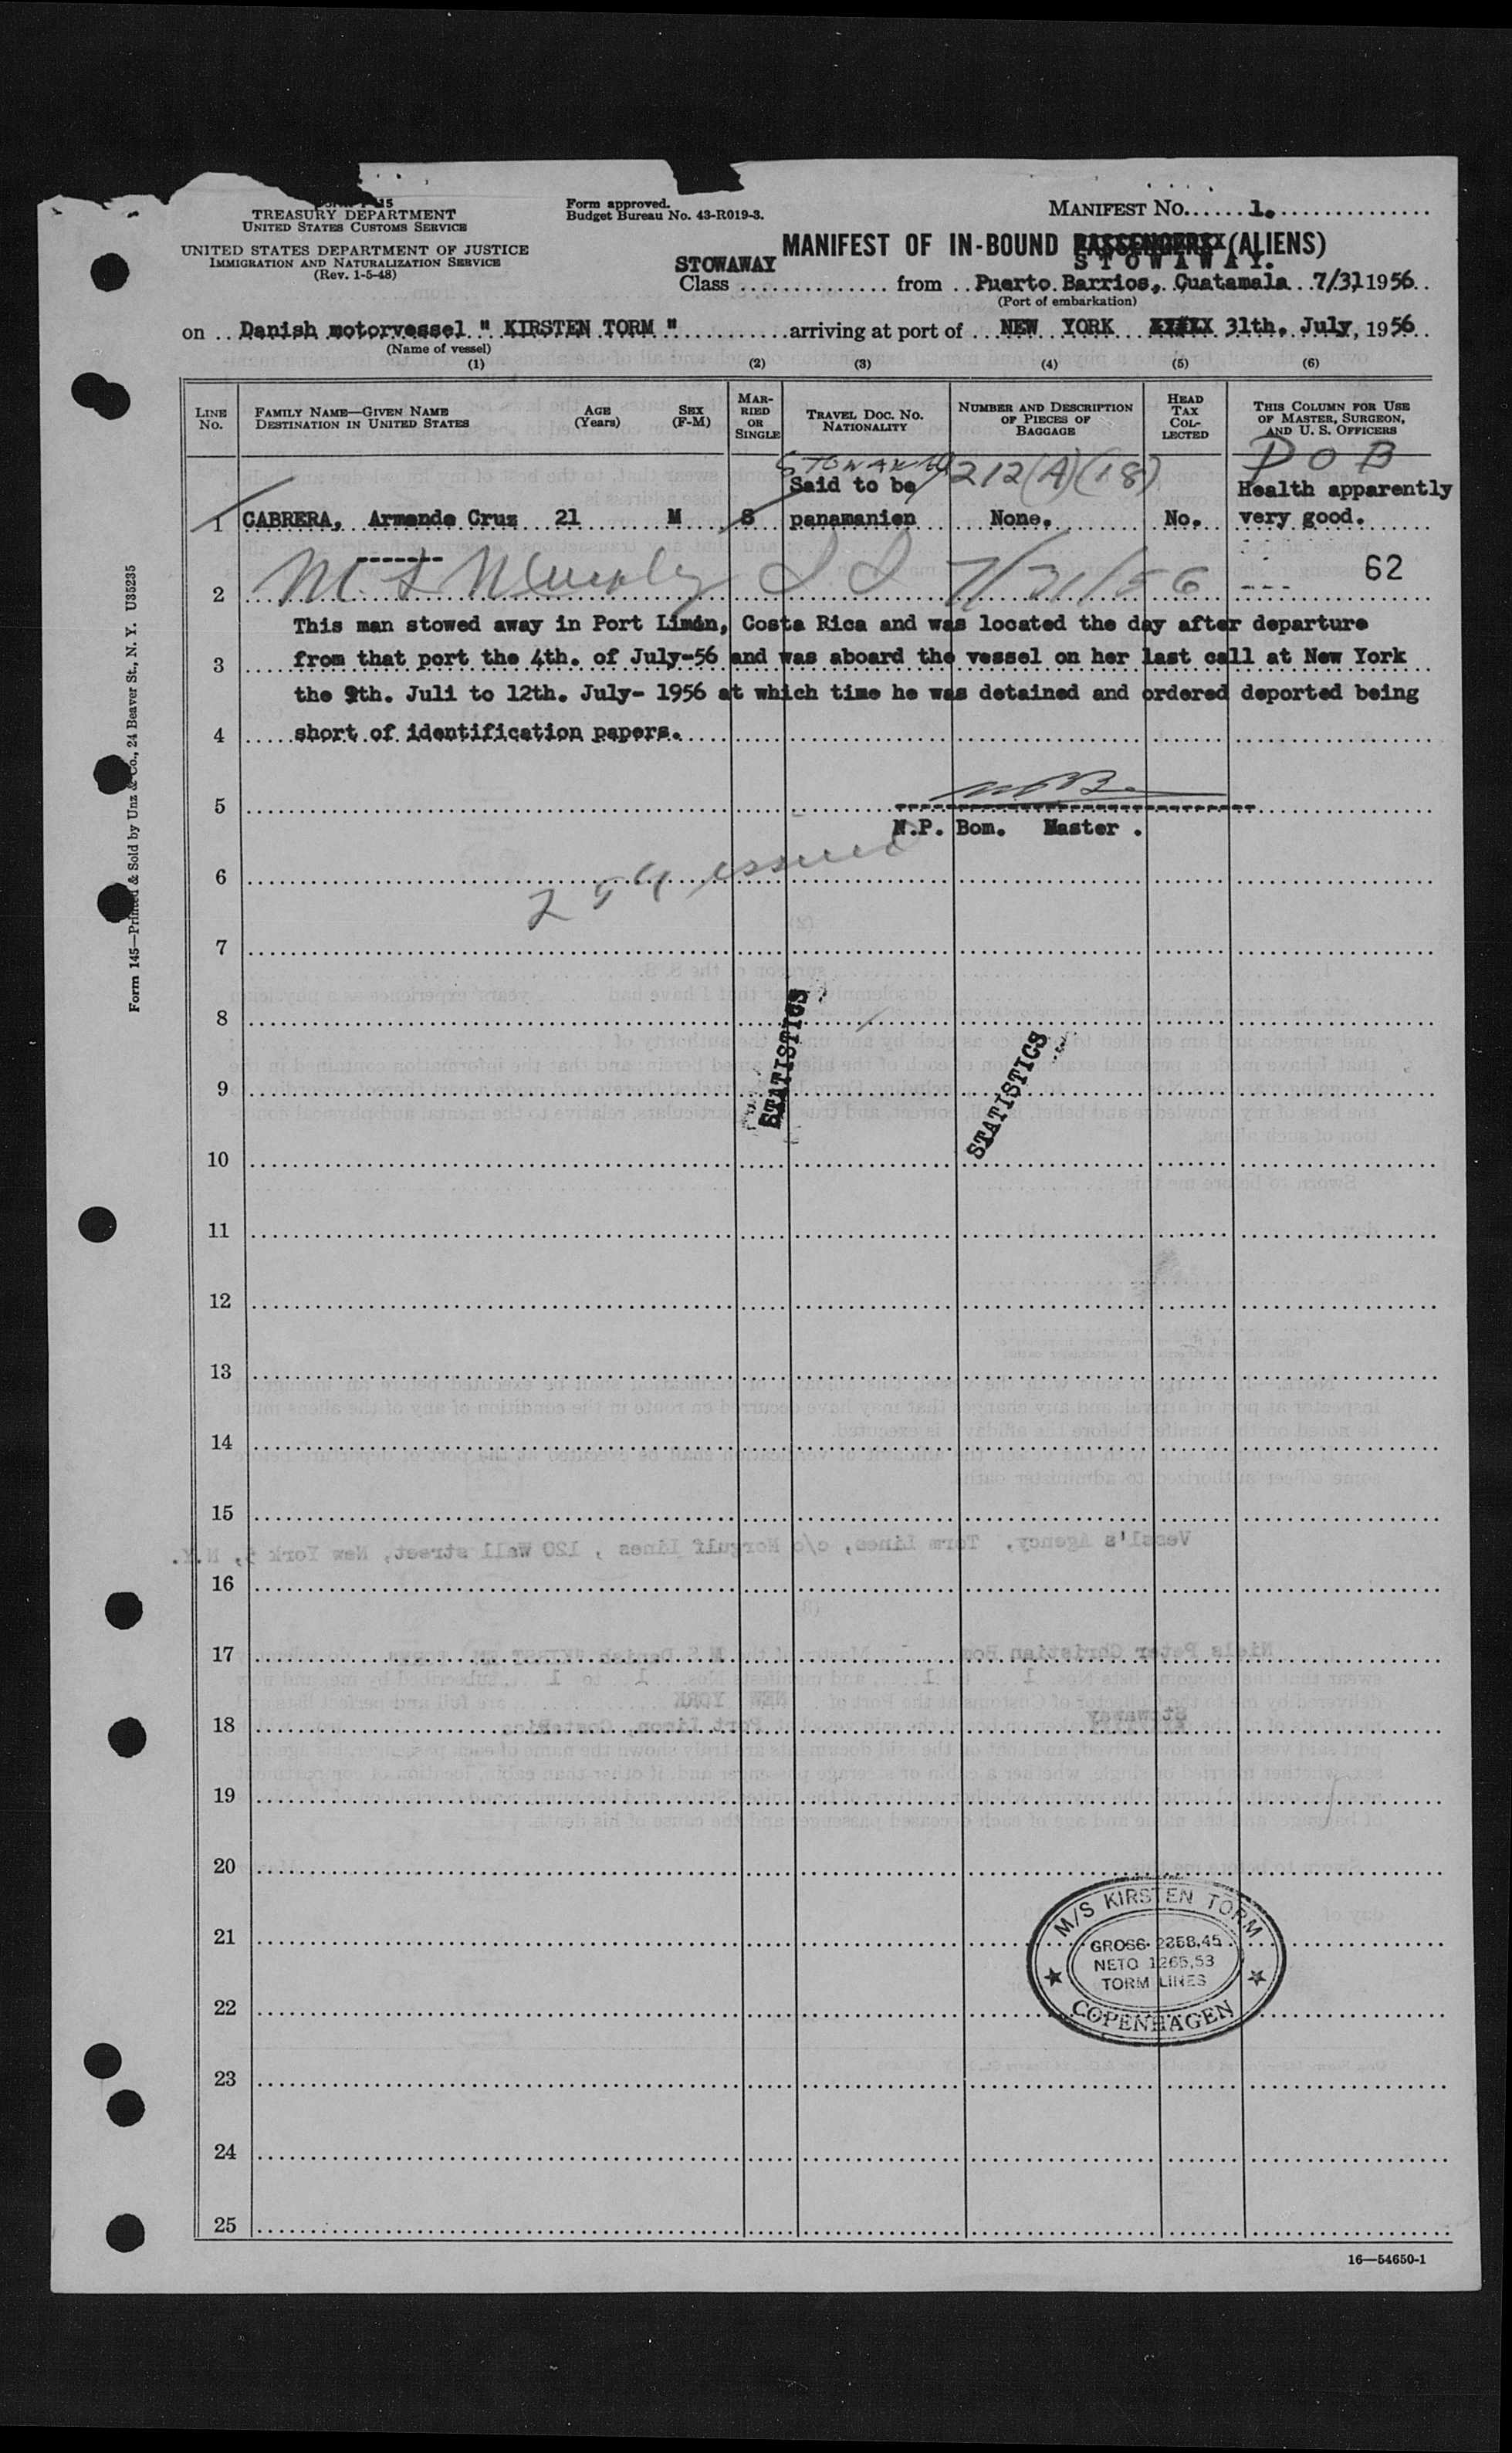 TREASURY DEPARTMENT
UNITED STATES CUSTOMS SERVICE
UNITED STATES DEPARTMENT OF JUSTICE
IMMIGRATION AND NATURALIZATION SERVICE
(Rev. 1-5-48)
Form approved.
Budget Bureau No. 43-R019-3.
MANIFEST No. 1.
MANIFEST OF IN-BOUND PASSENGERS (ALIENS)
STOWAWAY.
STOWAWAY
Class from Puerto Barrios, Guatamala 7/31 1956
(Port of embarkation)
on Danish motorvessel " KIRSTEN TORM " arriving at port of NEW YORK 31th. July, 1956
(Name of vessel)
(1) (2) (3) (4) (5) (6)
LINE No.
FAMILY NAME—GIVEN NAME
DESTINATION IN UNITED STATES
AGE (Years)
SEX (F-M)
MARRIED OR SINGLE
TRAVEL DOC. NO.
NATIONALITY
NUMBER AND DESCRIPTION
OF PIECES OF
BAGGAGE
HEAD TAX COLLECTED
THIS COLUMN FOR USE
OF MASTER, SURGEON,
AND U. S. OFFICERS
STOWAWAY 212(A)(18) D O B
Said to be Health apparently
1 CABRERA, Armando Cruz 21 M S panamanien None. No. very good.
2 7/31/56 62
This man stowed away in Port Limón, Costa Rica and was located the day after departure
3 from that port the 4th. of July-56 and was aboard the vessel on her last call at New York
the 9th. Juli to 12th. July- 1956 at which time he was detained and ordered deported being
4 short of identification papers.
5
N.P. Bom. Master .
6
259 issued
7
8
STATISTICS
STATISTICS
9
10
11
12
13
14
15
16
17
18
19
20
21
22
23
24
25
M/S KIRSTEN TORM
GROSS 2358,45
NETO 1265,53
TORM LINES
COPENHAGEN
16—54650-1
Form 145—Printed & Sold by Unz & Co., 24 Beaver St., N. Y. U35235